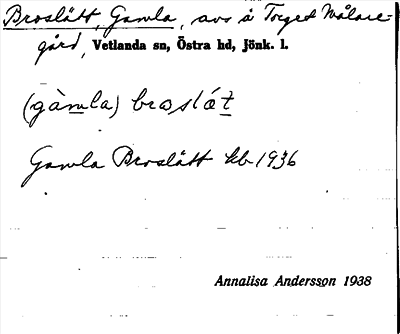 Broslätt, Gamla, avs å Torget Målare-
gård, Vetlanda sn, Östra hd, Jönk. l.
(gàmla) broslát
Gamla Broslätt kb 1936
Annalisa Andersson 1938